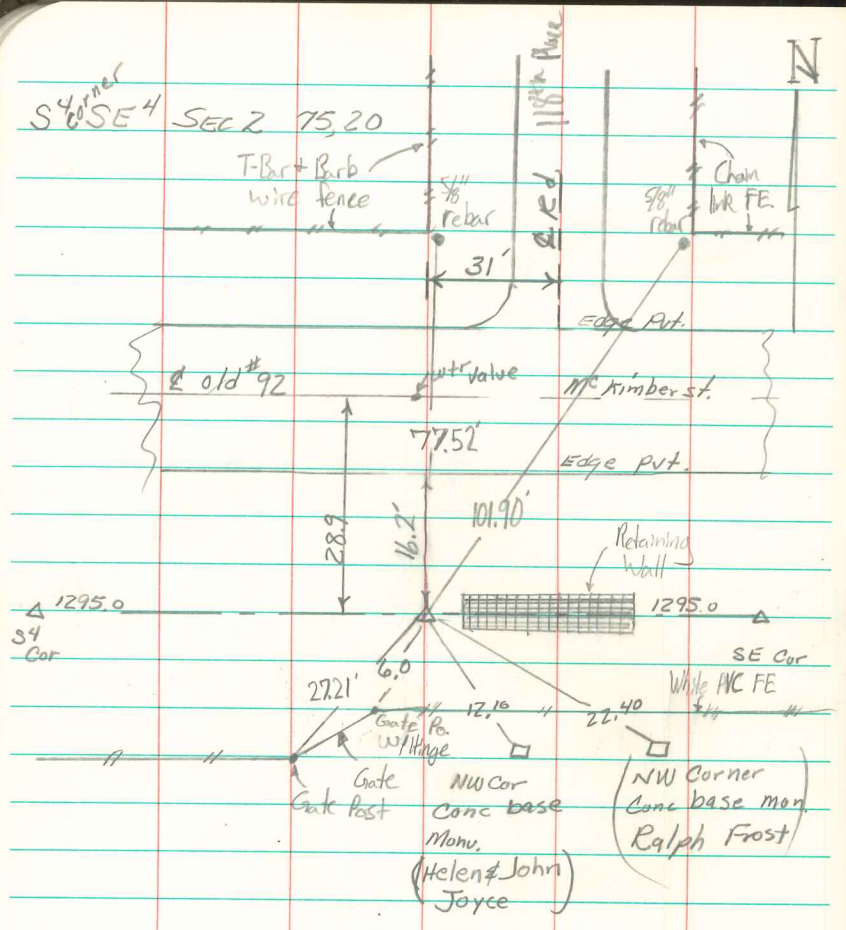 N
118th Place
S 4 corner SE 4 SEC 2 75,20
T-Bar & Barb
wire fence
5/8"
rebar
℄ Rd
5/8"
rebar
Chain
link FE.
31'
Edge Pvt.
℄ old #92
wtr value
Mc Kimber st.
77.52'
Edge pvt.
28.9
16.2'
101.90'
Retaining
Wall
1295.0
1295.0
S4
Cor
SE Cor
6.0
27.21'
White PVC FE
12.16
22.40
Gate Po.
W/Hinge
Gate
Gate Post
NW Cor
Conc base
Monu.
(Helen & John
Joyce)
(NW Corner
Conc base mon.
Ralph Frost)